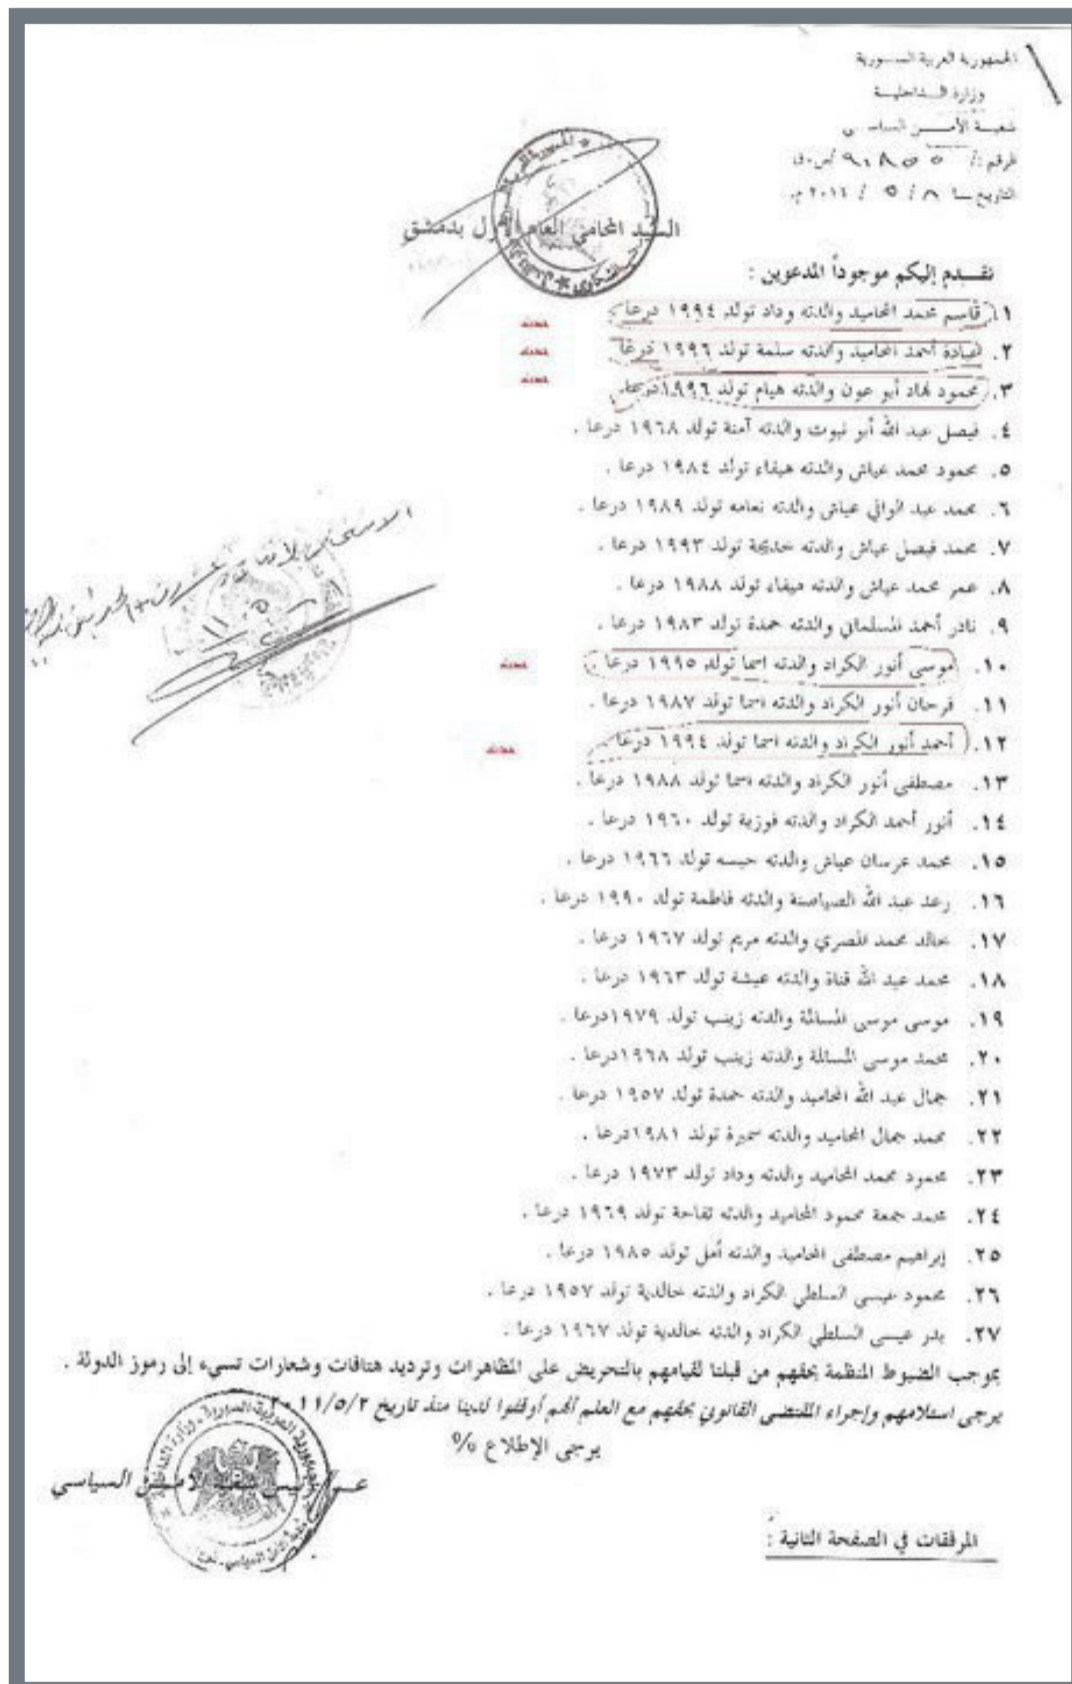 الجمهورية العربية السورية
وزارة الداخلية
شعبة الأمن السياسي
الرقم: / ٩٠٨٥٥
التاريخ ٨ / ٥ / ٢٠١١ م
السيد المحامي العام الأول بدمشق
نقدم إليكم موجوداً المدعوين :
١. قاسم محمد المحاميد والدته وداد تولد ١٩٩٤ درعا .
٢. عبادة أحمد المحاميد والدته سلمة تولد ١٩٩٦ درعا
٣. محمود نهاد أبو عون والدته هيام تولد ١٩٩٦درعا.
٤. فيصل عبد الله أبو نبوت والدته آمنة تولد ١٩٦٨ درعا .
٥. محمود محمد عياش والدته هيفاء تولد ١٩٨٤ درعا .
٦. محمد عبد الوافي عياش والدته نعامه تولد ١٩٨٩ درعا .
٧. محمد فيصل عياش والدته خديجة تولد ١٩٩٣ درعا .
٨. عمر محمد عياش والدته هيفاء تولد ١٩٨٨ درعا .
٩. نادر أحمد المسلماني والدته حمدة تولد ١٩٨٣ درعا .
١٠. موسى أنور الكراد والدته اسما تولد ١٩٩٥ درعا .
١١. فرحان أنور الكراد والدته اسما تولد ١٩٨٧ درعا .
١٢. أحمد أنور الكراد والدته اسما تولد ١٩٩٤ درعا .
١٣. مصطفى أنور الكراد والدته اسما تولد ١٩٨٨ درعا .
١٤. أنور أحمد الكراد والدته فوزية تولد ١٩٦٠ درعا .
١٥. محمد عرسان عياش والدته حبسه تولد ١٩٦٦ درعا .
١٦. رعد عبد الله الصياصنة والدته فاطمة تولد ١٩٩٠ درعا .
١٧. خالد محمد المصري والدته مريم تولد ١٩٦٧ درعا .
١٨. محمد عبد الله قناة والدته عيشة تولد ١٩٦٣ درعا .
١٩. موسى موسى المسالمة والدته زينب تولد ١٩٧٩درعا .
٢٠. محمد موسى المسالمة والدته زينب تولد ١٩٦٨درعا .
٢١. جمال عبد الله المحاميد والدته حمدة تولد ١٩٥٧ درعا .
٢٢. محمد جمال المحاميد والدته سميرة تولد ١٩٨١درعا .
٢٣. محمود محمد المحاميد والدته وداد تولد ١٩٧٣ درعا .
٢٤. محمد جمعة محمود المحاميد والدته تفاحة تولد ١٩٦٩ درعا .
٢٥. إبراهيم مصطفى المحاميد والدته أمل تولد ١٩٨٥ درعا .
٢٦. محمود عيسى السلطي الكراد والدته خالدية تولد ١٩٥٧ درعا .
٢٧. بدر عيسى السلطي الكراد والدته خالدية تولد ١٩٦٧ درعا .
بموجب الضبوط المنظمة بحقهم من قبلنا لقيامهم بالتحريض على المظاهرات وترديد هتافات وشعارات تسيء إلى رموز الدولة .
يرجى استلامهم وإجراء المقتضى القانوني بحقهم مع العلم أنهم أوقفوا لدينا منذ تاريخ ٢٠١١/٥/٢
يرجى الإطلاع %
رئيس شعبة الأمن السياسي
المرفقات في الصفحة الثانية :